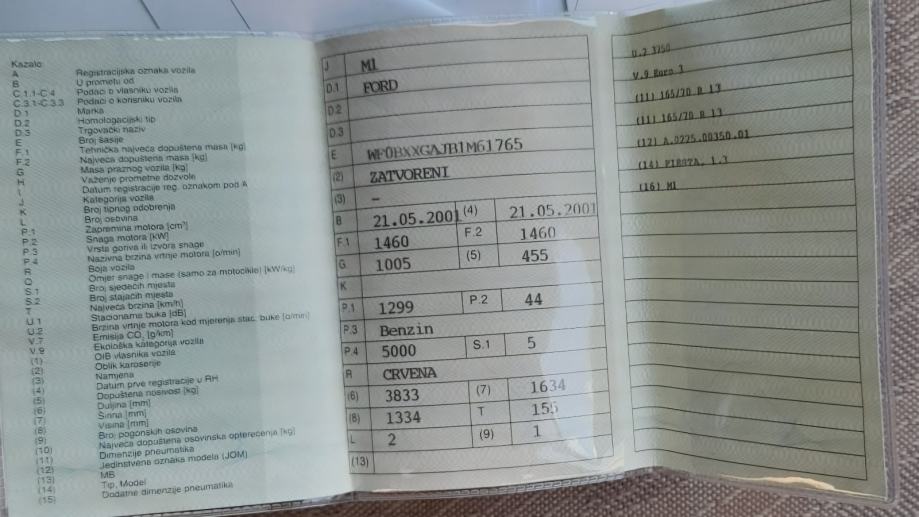 Kazalo:
A Registracijska oznaka vozila
B U prometu od
C.1.1-C.4 Podaci o vlasniku vozila
C.3.1-C.3.3 Podaci o korisniku vozila
D.1 Marka
D.2 Homologacijski tip
D.3 Trgovački naziv
E Broj šasije
F.1 Tehnička najveća dopuštena masa [kg]
F.2 Najveća dopuštena masa [kg]
G Masa praznog vozila [kg]
H Važenje prometne dozvole
I Datum registracije reg. oznakom pod A
J Kategorija vozila
K Broj tipnog odobrenja
L Broj osovina
P.1 Zapremina motora [cm³]
P.2 Snaga motora [kW]
P.3 Vrsta goriva ili izvora snage
P.4 Nazivna brzina vrtnje motora [o/min]
R Boja vozila
Q Omjer snage i mase (samo za motocikle) [kW/kg]
S.1 Broj sjedećih mjesta
S.2 Broj stajaćih mjesta
T Najveća brzina [km/h]
U.1 Stacionarna buka [dB]
U.2 Brzina vrtnje motora kod mjerenja stac. buke [o/min]
V.7 Emisija CO₂ [g/km]
V.9 Ekološka kategorija vozila
(1) OIB vlasnika vozila
(2) Oblik karoserije
(3) Namjena
(4) Datum prve registracije u RH
(5) Dopuštena nosivost [kg]
(6) Duljina [mm]
(7) Širina [mm]
(8) Visina [mm]
(9) Broj pogonskih osovina
(10) Najveća dopuštena osovinska opterećenja [kg]
(11) Dimenzije pneumatika
(12) Jedinstvena oznaka modela (JOM)
(13) MB
(14) Tip, Model
(15) Dodatne dimenzije pneumatika
J M1
D.1 FORD
D.2
D.3
E WF0BXXGAJB1M61765
(2) ZATVORENI
(3) -
B 21.05.2001 (4) 21.05.2001
F.1 1460 F.2 1460
G 1005 (5) 455
K
P.1 1299 P.2 44
P.3 Benzin
P.4 5000 S.1 5
R CRVENA
(6) 3833 (7) 1634
(8) 1334 T 155
L 2 (9) 1
(13)
U.2 3750
V.9 Euro 3
(11) 165/70 R 13
(11) 165/70 R 13
(12) A.0225.00350.01
(14) FIESTA, 1.3
(16) M1